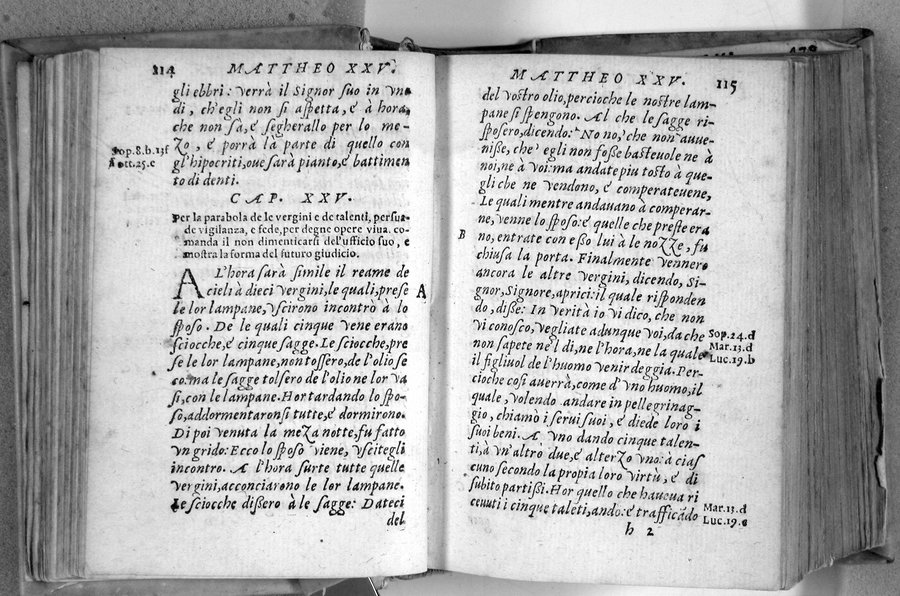 114 MATTHEO XXV.
gli ebbri: verrà il Signor suo in vno
di, ch'egli non si aspetta, e à hora,
che non sà, e segherallo per lo me-
Zo, e porrà la parte di quello con
gl'hipocriti, oue sarà pianto, e battimen
to di denti.
Sop.8.b.13f
Sott.25.c
CAP. XXV.
Per la parabola de le vergini e de talenti, persua-
de vigilanza, e fede, per degne opere viua. co-
manda il non dimenticarsi del'ufficio suo, e
mostra la forma del futuro giudicio.
AL'hora sarà simile il reame de
cieli à dieci vergini, le quali, prese
le lor lampane, vscirono incontrò à lo
sposo. De le quali cinque vene erano
sciocche, e cinque sagge. Le sciocche, pre
se le lor lampane, non tossero, de l'olio se
co. ma le sagge tolsero de l'olio ne lor va
si, con le lampane. Hor tardando lo spo-
so, addormentaronsi tutte, e dormirono.
Di poi venuta la meZa notte, fu fatto
vn grido: Ecco lo sposo viene, vscitegli
incontro. A l'hora surte tutte quelle
vergini, acconciarono le lor lampane.
Le sciocche dissero à le sagge: Dateci
del
A
MATTHEO XXV. 115
del vostro olio, percioche le nostre lam-
pane si spengono. Al che le sagge ri-
sposero, dicendo: No no, che non auue-
nisse, che' egli non fosse basteuole ne à
noi, ne à voi: ma andate piu tosto à que-
gli che ne vendono, e comperateuene,
Le quali mentre andauano à comperar-
ne, venne lo sposo: e quelle che preste era
no, entrate con esso lui à le noZZe, fu
chiusa la porta. Finalmente vennero
ancora le altre vergini, dicendo, Si-
gnor, Signore, aprici: il quale risponden
do, disse: In verità io vi dico, che non
vi conosco, vegliate adunque voi, da che
non sapete ne'l di, ne l'hora, ne la quale
il figliuol de l'huomo venir deggia. Per-
cioche cosi auerrà, come d'vno huomo, il
quale, volendo andare in pellegrinag-
gio, chiamò i serui suoi, e diede loro i
suoi beni. A vno dando cinque talen-
ti, à vn'altro due, e alterZo vno: à cias
cuno secondo la propia loro virtù, e di
subito partissi. Hor quello che haueua ri
ceuuti i cinque taleti, ando: e trafficãdo
B
Sop.24.d
Mar.13.d
Luc.19.b
Mar.13.d
Luc.19.c
h 2